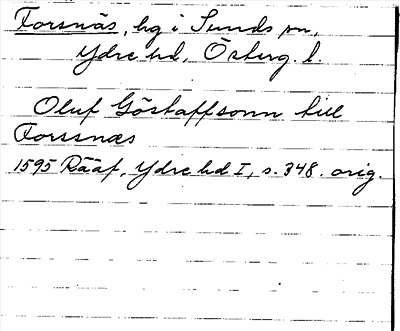 Forsnäs, hg i Sunds sn,
Ydre hd, Österg. l.
Oluf Göstaffsonn till
Forssnæs
1595 Rääf, Ydre hd I, s. 348. orig.